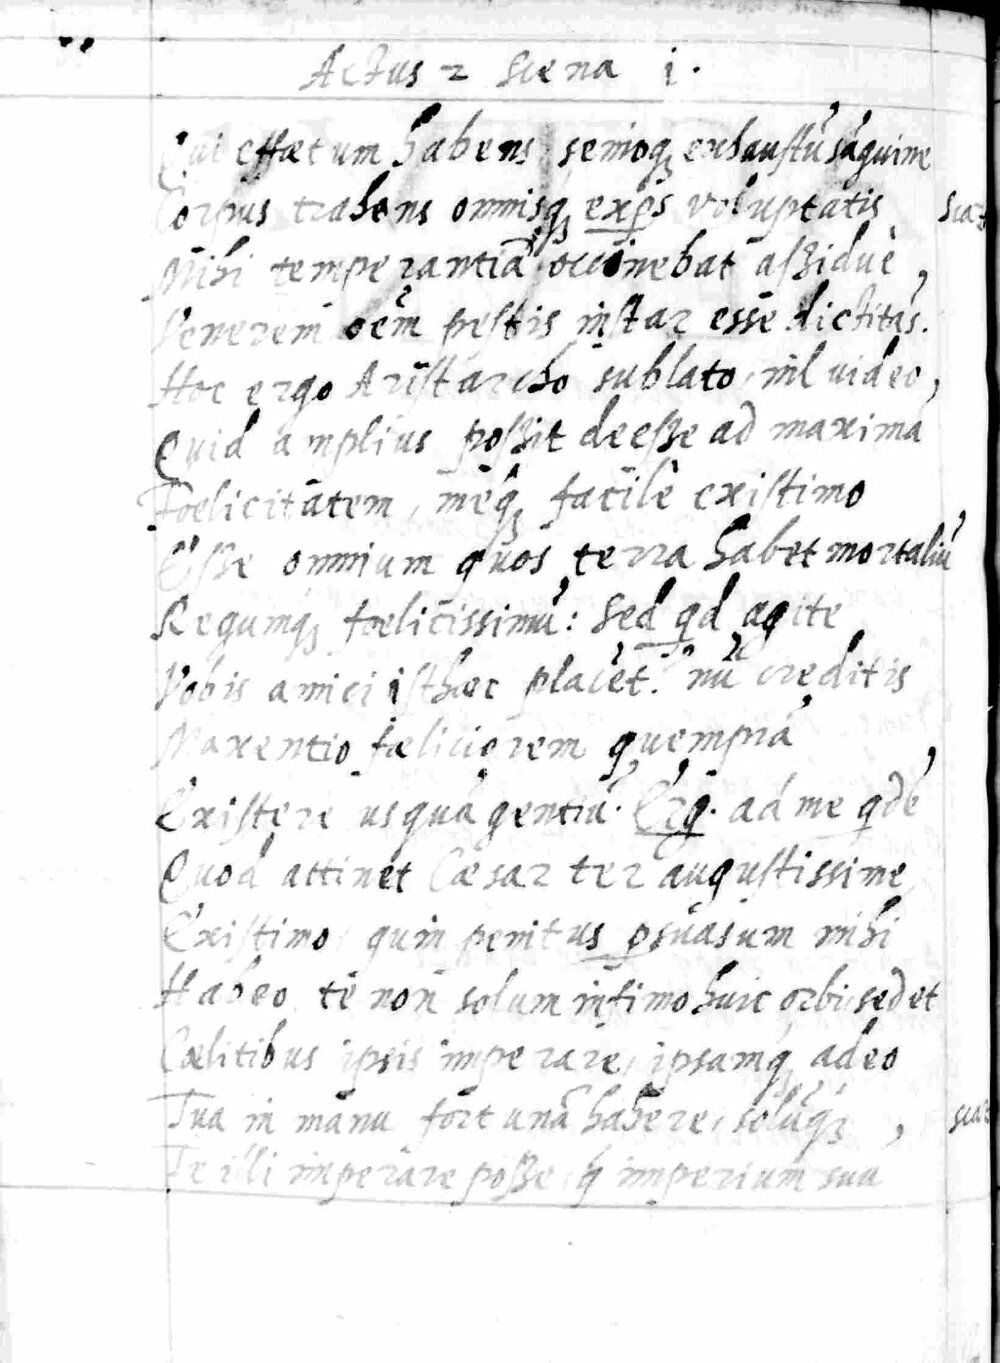 Actus 2 Scena i.
Qui effœtum habens semoq; exhaustũ sãguine
Corpus trahens omnisq; exp̱s voluptatis
Mihi temperantiã occinebat aßiduè,
Venerem oẽm pestis instar esse dictitãs.
Hoc ergo Aristarcho sublato, nil video,
Quid amplius poßit deeße ad maximã
Fœlicitatem, meq; facilè existimo
Eße omnium quos terra habet mortaliũ
Regumq; fœlicissimũ: Sed qd agite
Vobis amici isthæc placẽt? nũ creditis
Maxentio fœliciorem quempiã
Existere usquã gentiũ. Erg. ad me qdẽ
Quod attinet Cæsar ter augustissime
Existimo, quin penitus p̱suasum mihi
Habeo te non solum infimo huic orbi, sed et
Cœlitibus ipsis imperare, ipsamq; adeo
Tua in manu fortunã habere, solũq;,
Te illi imperare poße, q̃ imperium suũ